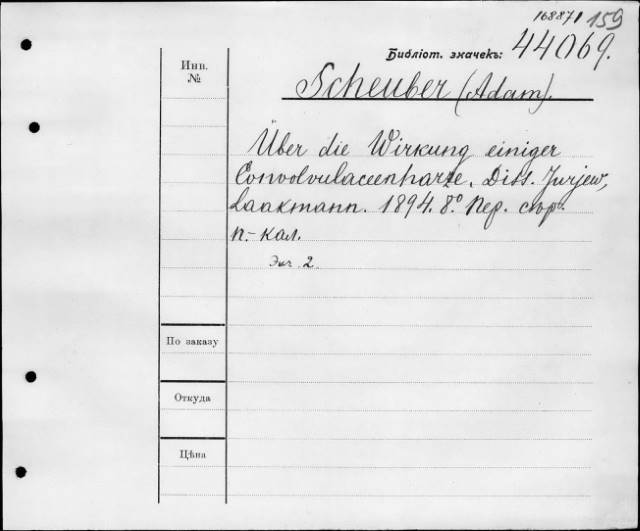 168871 159
Библіот. значекъ: 44069.
Инв.
№
Scheuber (Adam).
Über die Wirkung einiger
Convolvulaceenharze. Diss. Jurjew,
Laakmann. 1894. 8.º Пер.
п.-кал.
Экз. 2.
По заказу
Откуда
Цѣна